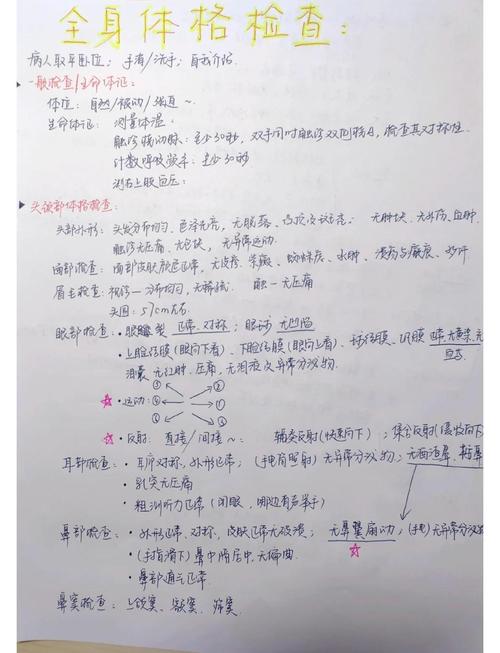 全身体格检查:
病人取平卧位; 手消/洗手; 自我介绍.
一般检查/生命体征:
体位: 自然/被动/强迫~
生命体征: 测量体温:
触诊桡动脉: 至少30秒, 双手同时触诊双侧桡A, 检查其对称性
计数呼吸频率: 至少30秒
测右上肢血压:
头颈部体格检查:
头部外形: 头发分布均匀, 色泽光亮, 无脱落、 无肿块、无外伤、血肿.
触诊无压痛, 无包块, 无异常运动.
面部检查: 面部皮肤颜色正常, 无皮疹、紫癜、蜘蛛痣、水肿、溃疡与瘢痕、
眉毛检查: 视诊-分布均匀, 无稀疏. 触-无压痛
头围: 57cm左右
眼部检查: ·眼睑 正常.对称; 眼球 无凹陷
·上睑结膜(眼向下看)、下睑结膜(眼向上看)、球结膜、巩膜 正常.无黄染.无
泪囊 无红肿、压痛, 无泪液及异常分泌物.
·运动: ① ② ③ ④ ⑤ ⑥
·反射: 直接/间接~: 辐辏反射(快速向下); 集合反射(慢收向下)
耳部检查: ·耳廓对称、外形正常; (手电筒照射) 无异常分泌物;
乳突无压痛
·粗测听力正常 (闭眼, 哪边有声举手)
鼻部检查: ·外形正常、对称, 皮肤正常无破溃; 无鼻翼扇动; (手电) 无异常分泌物
·(手指滑下) 鼻中隔居中, 无偏曲.
·鼻部通气正常.
鼻窦检查: 上颌窦、额窦、筛窦.